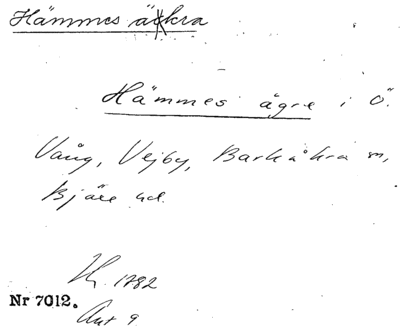 Hämmes äkra
Hämmes ågre i Ö.
Vång, Vejby, Barkåkra sn,
Bjäre hd.
1782
Nr 7012.
Akt 9